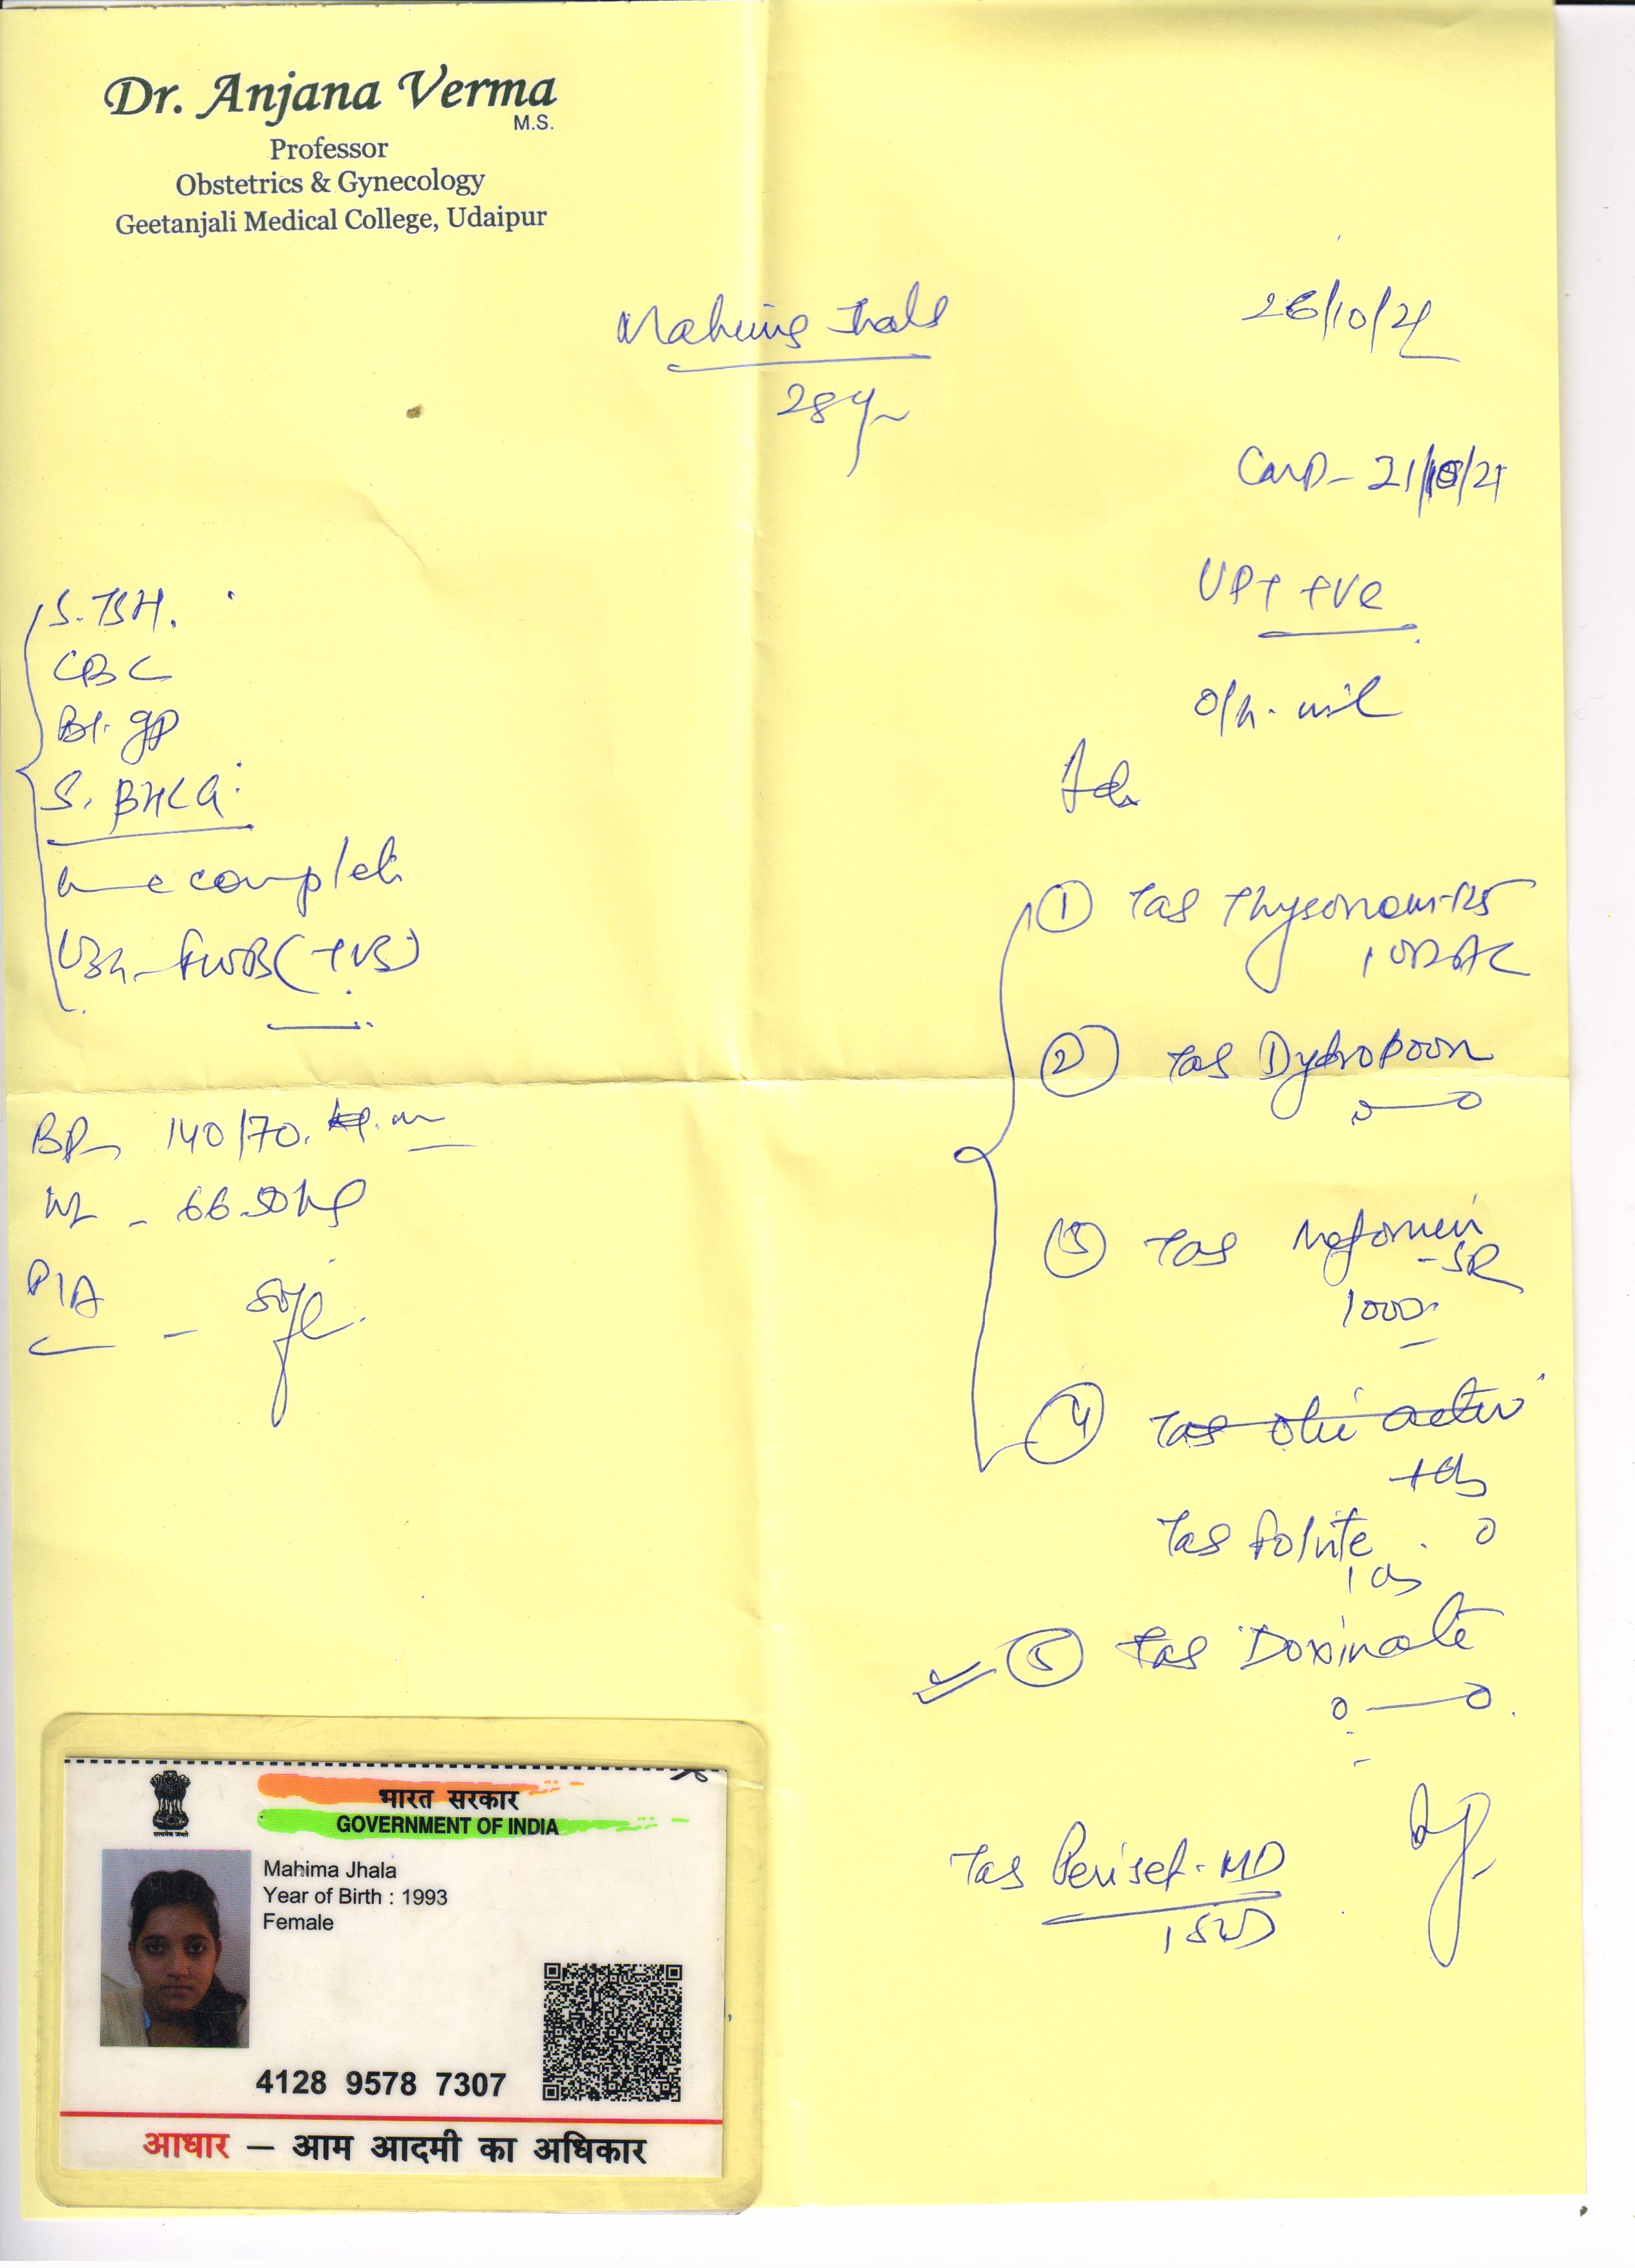 Dr. Anjana Verma
M.S.
Professor
Obstetrics & Gynecology
Geetanjali Medical College, Udaipur
26/10/21
28y
UPT +ve
O/h. nil
S. TSH.
CBC
Bl. gp
S. BHCG.
complete
(TVS)
BP 140/70.
Wt - 66.50kg
P/A - soft
Adv
① Tab Thyronorm-125
1 OD AC
② Tab Dydroboon
0—0
③ Tab Metformin
-SR
1000
④
Tab Folvite . 0
1 OD
⑤ Tab Doxinate
0—0
Tab Periset-MD
1 SOS
भारत सरकार
GOVERNMENT OF INDIA
Mahima Jhala
Year of Birth : 1993
Female
4128 9578 7307
आधार — आम आदमी का अधिकार